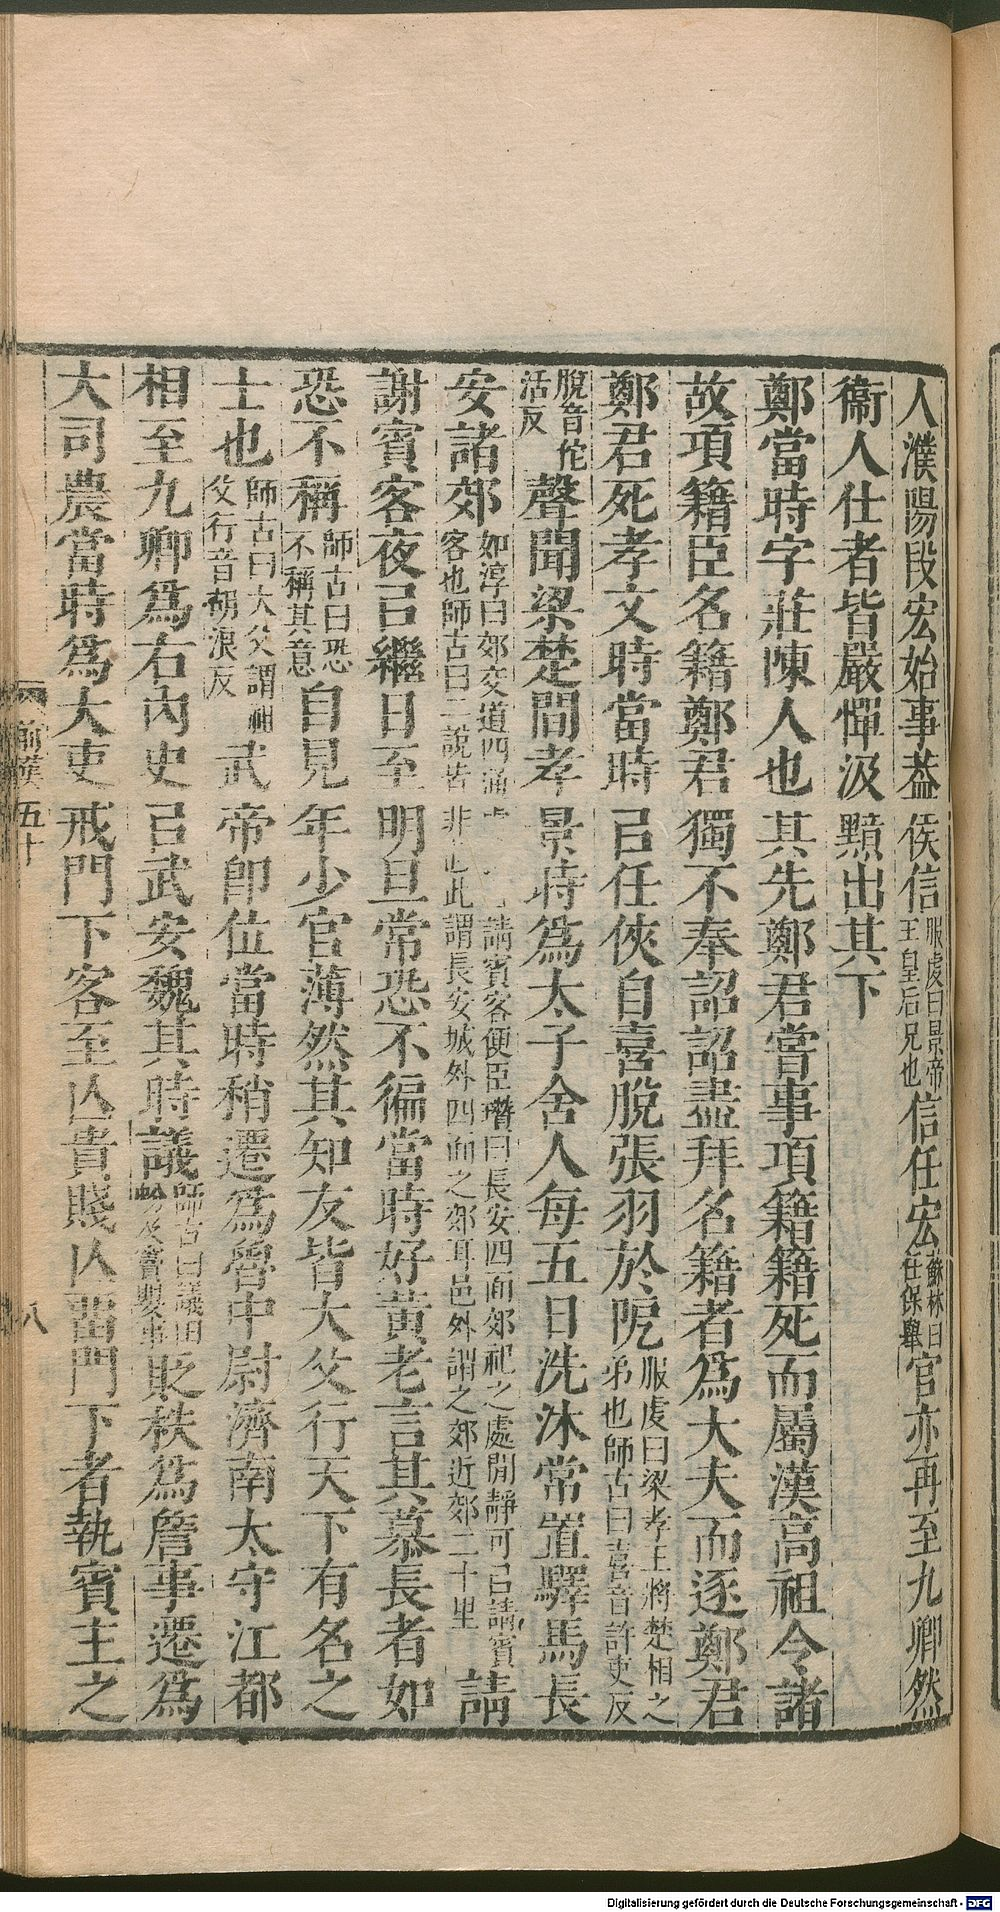 人濮陽段宏始事葢侯信服虔曰景帝王皇后兄也信任宏蘇林曰任保舉官亦再至九卿然
衞人仕者皆嚴憚汲黯出其下
鄭當時字莊陳人也其先鄭君嘗事項籍籍死而屬漢高祖令諸
故項籍臣名籍鄭君獨不奉詔詔盡拜名籍者爲大夫而逐鄭君
鄭君死孝文時當時㠯任俠自喜脫張羽於阸服虔曰梁孝王將楚相之弟也師古曰喜音許吏反
脫音佗活反聲聞梁楚間孝景時爲太子舍人每五日洗沐常置驛馬長
安諸郊如淳曰郊交道四通請賓客便臣瓚曰長安四面郊祀之處閒靜可㠯請賓客也師古曰二說皆非也此謂長安城外四面之郊耳邑外謂之郊近郊二十里請
謝賓客夜㠯繼日至明旦常恐不徧當時好黃老言其慕長者如
恐不稱師古曰恐不稱其意自見年少官薄然其知友皆大父行天下有名之
士也師古曰大父謂祖父行音胡浪反武帝卽位當時稍遷爲魯中尉濟南太守江都
相至九卿爲右內史㠯武安魏其時議師古曰議田蚡及竇嬰事貶秩爲詹事遷爲
大司農當時爲大吏戒門下客至亾貴賤亾畱門下者執賓主之
前漢五十
八
Digitalisierung gefördert durch die Deutsche Forschungsgemeinschaft - DFG